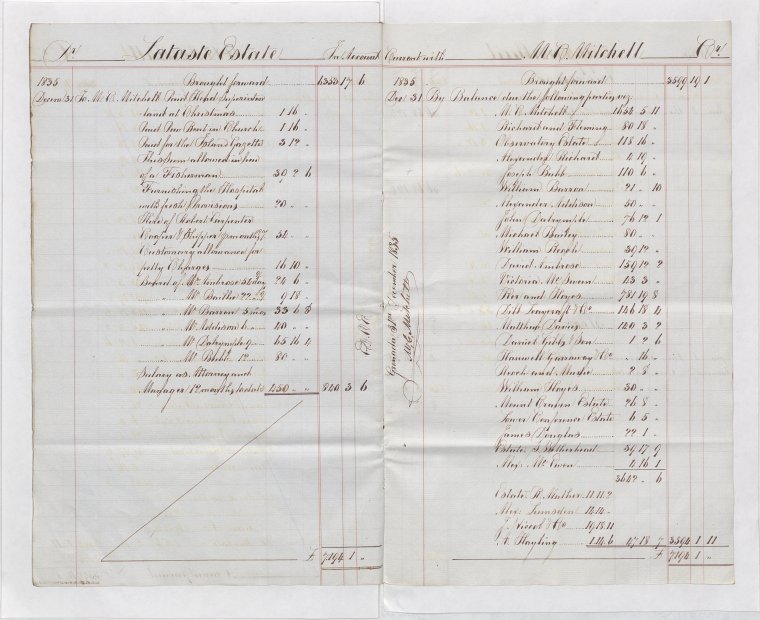 Dr Lataste Estate In Account
1835 Brought forward 6353 17 6
Decem 31 To M. C. Mitchell Paid Head Superinten
dant at Christmas 1 16 "
Paid Pew Rent in Church 1 16 "
Paid for the Island Gazette 3 12 "
This sum allowed in lieu
of a Fisherman 30 2 6
Furnishing the Hospital
with fresh Provisions 20 " "
Hire of Robert Carpenter
Cooper & Shipper 9 months 54 " "
Customary allowance for
petty Charges 16 10 "
Board of Mr Ambrose 54 days 24 6 "
" Mr Bailie 22 9 18 "
" Mr Barron 5 mos 33 6 8
" Mr Addison 6 40 " "
" Mr Dalrymple 9 65 16 4
" Mr Bubb 12 80 " "
Salary as Attorney and
Manager 12 months to date 450 " " 840 3 6
£ 7194 1 "
E. & O. E.
Grenada 31st December 1835
M. C. Mitchell
Current with M. C. Mitchell Cr
1835 Brought forward 3599 19 1
Dec 31 By Balance due the following parties, viz
M. C. Mitchell 1654 5 11
Richard and Fleming 80 18 "
Observatory Estate 118 16 "
Alexander Richard 4 19 "
Joseph Bubb 110 6 "
William Barron 21 " 10
Alexander Addison 50 " "
John Dalrymple 76 12 1
Michael Bailey 80 " "
William Heugh 39 12 "
David Ambrose 159 12 2
Victoria McSween 43 3 "
Ker and Hoyes 781 19 8
Pitt Seagraft & Co 146 18 4
Matthew Davies 140 3 2
Daniel Gibbs & Son 1 2 6
Hanwell Garraway & Co " 16 "
Heugh and Mudie 2 8 "
William Hoyes 30 " "
Mount Craven Estate 26 8 "
Lower Conference Estate 6 5 "
James Douglas 22 1 "
Estate J. Wetherhead 39 17 9
Alex. McEwen 4 16 1
3642 " 6
Estate H. Mather 11.11.2
Alex. Lumsden 14.14 "
J. Nicol & Co 19.18.11
A. Hayling 1.14.6 47 18 7 3594 1 11
£ 7194 1 "